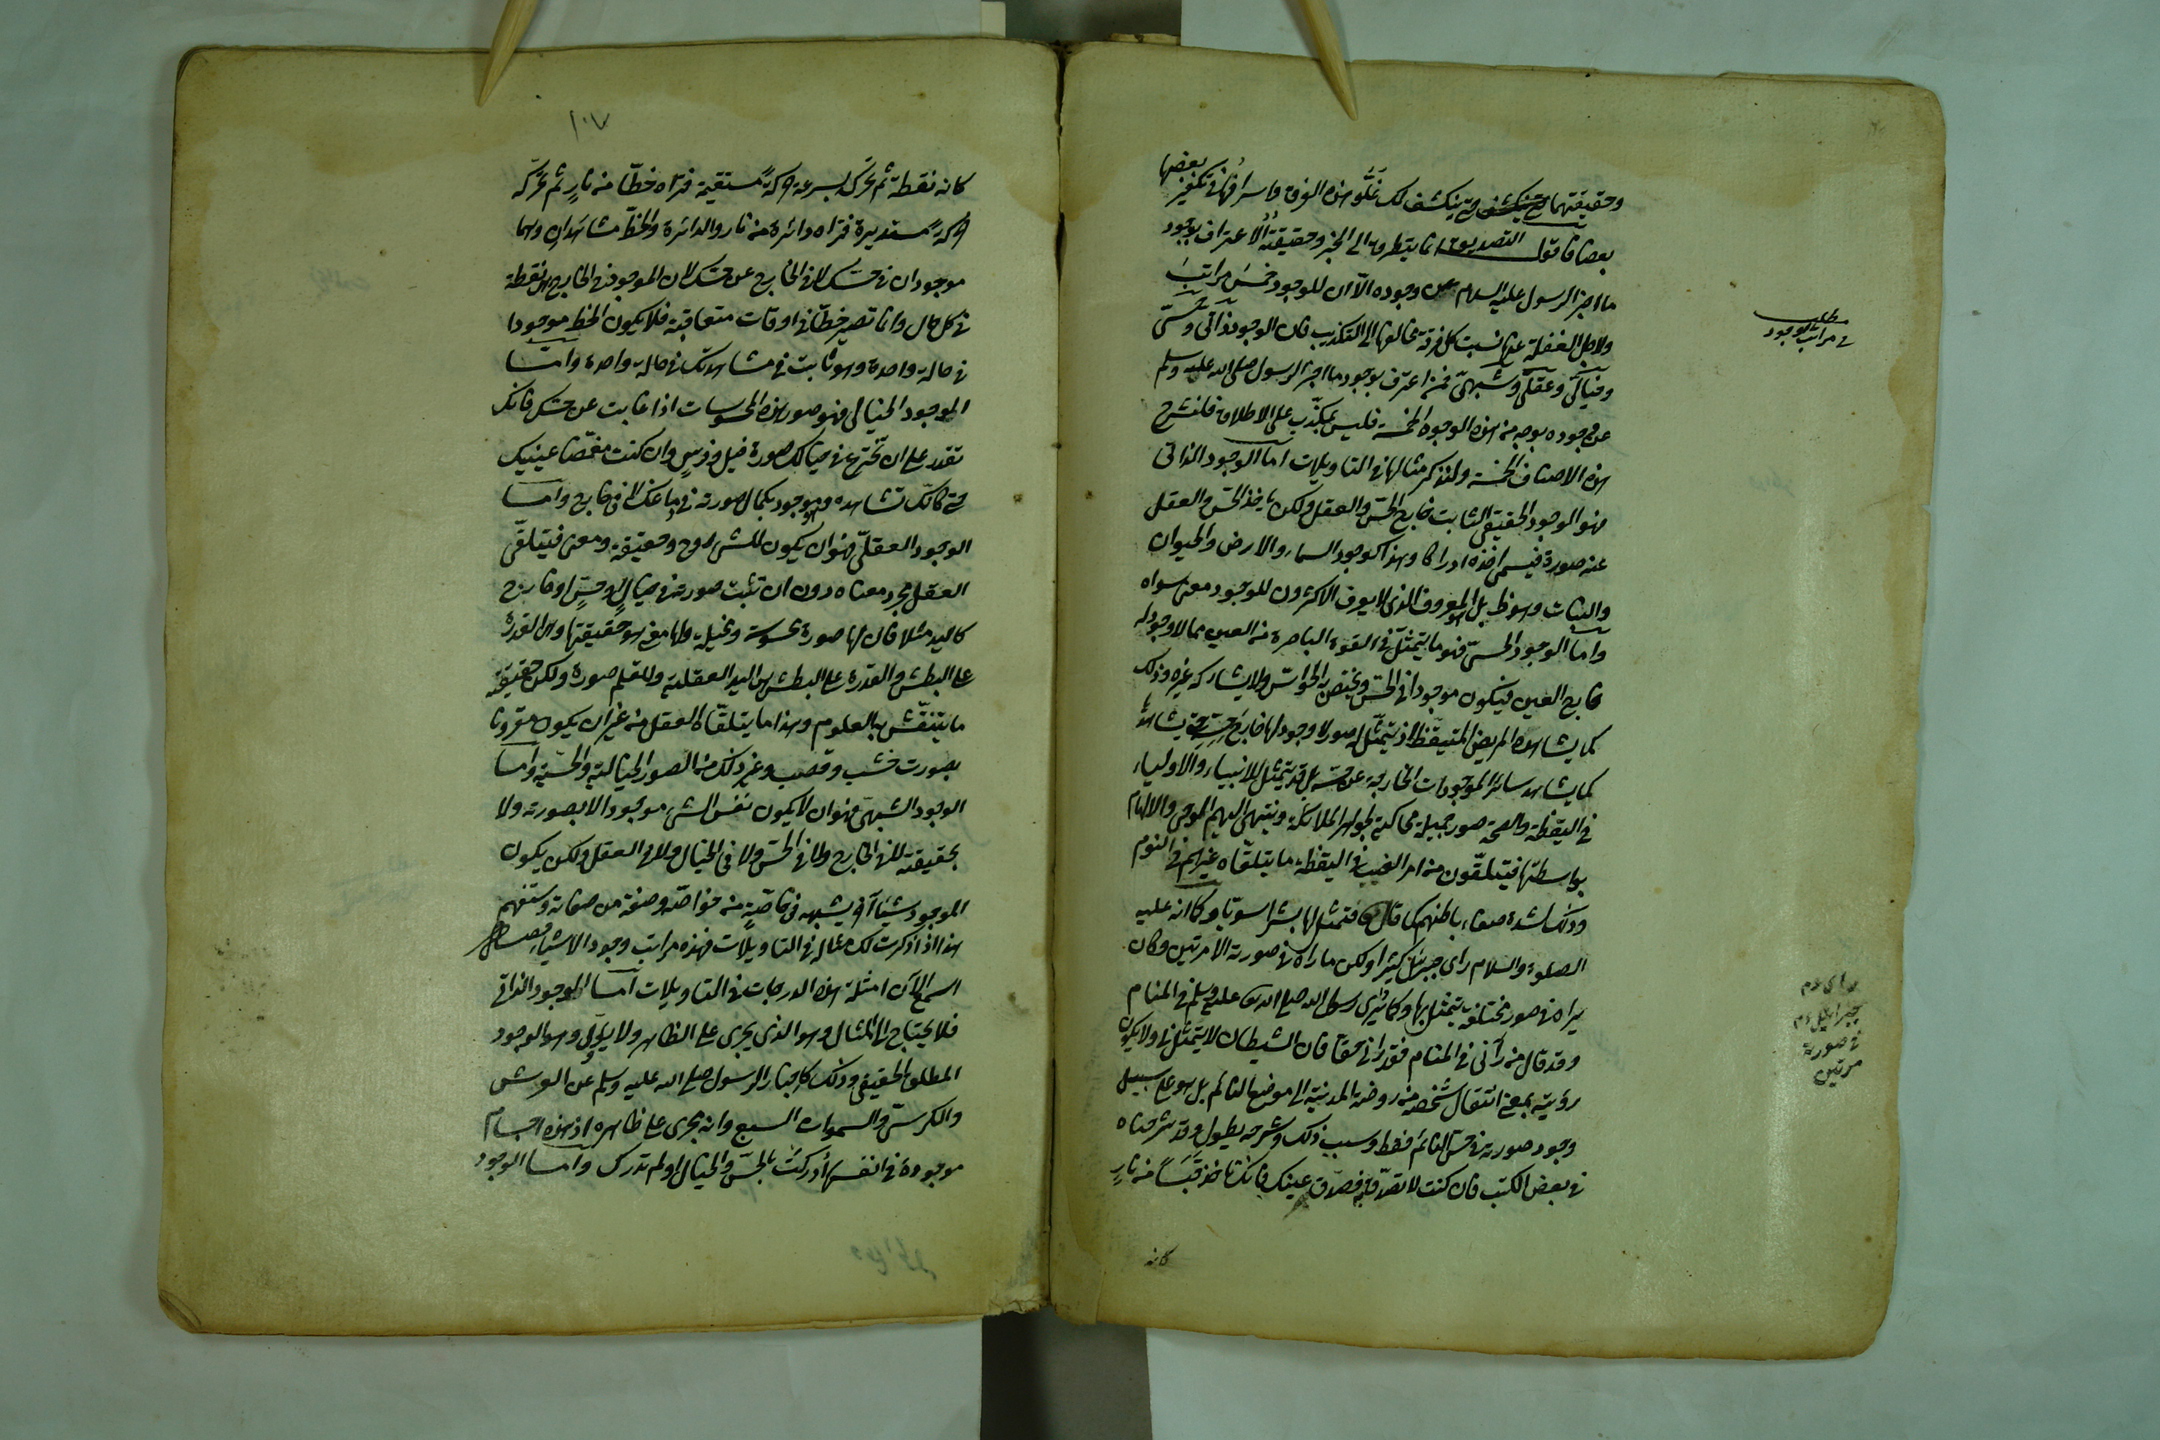 وحقيقتهما حتى ينكشف لك غلو هذه الفرق واسرافها في تكفير بعضها
بعضا فاقول التصديق انما يتطرق الى الخبر وحقيقته الاعتراف بوجود
ما اخبر الرسول عليه السلام عن وجوده الا ان للوجود خمس مراتب
ولاجل الغفلة عنها نسبت كل فرقة مخالفها الى التكذيب فان الوجود ذاتى وحسّى
وخيالى وعقلى وشبهى فمن اعترف بوجود ما اخبر الرسول صلى الله عليه وسلم
عن وجوده بوجه من هذه الوجوه الخمسة فليس بمكذّب على الاطلاق فلنشرح
هذه الاصناف الخمسة ولنذكر مثالها في التاويلات اما الوجود الذاتى
فهو الوجود الحقيقى الثابت خارج الحسّ والعقل ولكن ياخذ الحسّ والعقل
عنه صورة فيسمى اخذه ادراكا وهذا كوجود السماء والارض والحيوان
والنبات وهو ظ بل هو المعروف الذى لا يعرف الاكثرون للوجود معنى سواه
واما الوجود الحسّى فهو ما يتمثّل في القوة الباصرة من العين مما لا وجود له
خارج العين فيكون موجودا في الحسّ ويختص به الحواسّ ولا يشاركه غيره وذلك
كما يشاهده المريض المتيقّظ اذ يتمثّل له صور لا وجود لها خارج حسّه حتى يشاهدها
كما يشاهد سائر الموجودات الخارجة عن حسّه بل قد يتمثل للانبياء والاولياء
في اليقظة والصحة صور جميلة محاكية لجواهر الملائكة وينتهى اليهم الوحى والالهام
بواسطتها فيتلقّون من امر الغيب في اليقظة ما يتلقّاه غيرهم في النوم
وذلك لشدة صفاء باطنهم كما قال فتمثل لها بشرا سويّا وكما انه عليه
الصلوة والسلام راى جبرئيل كثيرا ولكن ما راه في صورته الا مرتين وكان
يراه في صور مختلفة يتمثل بها وكما يُرى رسول الله صلى الله عليه وسلم في المنام
وقد قال من رآنى في المنام فقد رانى حقّا فان الشيطان لا يتمثّل بى ولا يكون
رؤيته بمعنى انتقال شخصه من روضة المدينة الى موضع النائم بل هو على سبيل
وجود صورته في حسّ النائم فقط وسبب ذلك وشرحه يطول وقد شرحناه
في بعض الكتب فان كنت لا تصدّق به فصدّق عينك فانك تاخذ قبسًا من نارٍ
كانه
مطلب
في مراتب الوجود
راى عم
جبرائيل عم
في صورته
مرتين
١٠٧
كانه نقطة ثم تحركه بسرعة حركةً مستقيمة فتراه خطّا من نارٍ ثم تحرّكه
حركةً مستديرة فتراه دائرة من نار والدائرة والخطّ مشاهدان وهما
موجودان في حسّك لا في الخارج عن حسّك لان الموجود في الخارج هى نقطة
في كل حال وانما تصير خطّا في اوقات متعاقبة فلا يكون الخط موجودا
في حالة واحدة وهو ثابت في مشاهدتك في حالة واحدة وامّا
الوجود الخيالى فهو صور هذه المحسوسات اذا غابت عن حسّك فانك
تقدر على ان تخترع في خيالك صورة فيل وفرسٍ وان كنت مغمّضا عينيك
حتى كانّك تشاهده وهو موجود بكمال صورته في دماغك لا في خارج وامّا
الوجود العقلىّ فهو ان يكون للشئ روح وحقيقة ومعنى فيتلقّى
العقل مجرد معناه دون ان تثبت صورته في خيالٍ او حسٍّ او خارج
كاليد مثلا فان لها صورة محسوسة ومخيلة ولها معنى هو حقيقتها وهى القدرة
على البطش والقدرة على البطش هى اليد العقلية وللقلم صورة ولكن حقيقته
ما يتنقّش به العلوم وهذا ما يتلقّاه العقل من غير ان يكون مقرونا
بصورت خشب وقصب وغير ذلك من الصور الخيالية والحسّية وامّا
الوجود الشبهى فهو ان لا يكون نفس الشئ موجودا لا بصورته ولا
بحقيقته لا في الخارج ولا في الحسّ ولا في الخيال ولا في العقل ولكن يكون
الموجود شيئا آخر يشبهه في خاصيّةٍ من خواصّه وصفة من صفاته وستفهم
هذا اذا ذكرت لك مثاله في التاويلات فهذه مراتب وجود الاشياء فصل
اسمع الآن امثلة هذه الدرجات في التاويلات امّا الوجود الذاتى
فلا يحتاج الى المثال وهو الذى يجرى على الظاهر ولا يؤوّل وهو الوجود
المطلق الحقيقى وذلك كاخبار الرسول صلى الله عليه وسلم عن العرش
والكرسىّ والسموات السبع وانه يجرى على ظاهره اذ هذه اجسام
موجودة في انفسها أدركت بالحسّ والخيال او لم تدرك وامّا الوجود